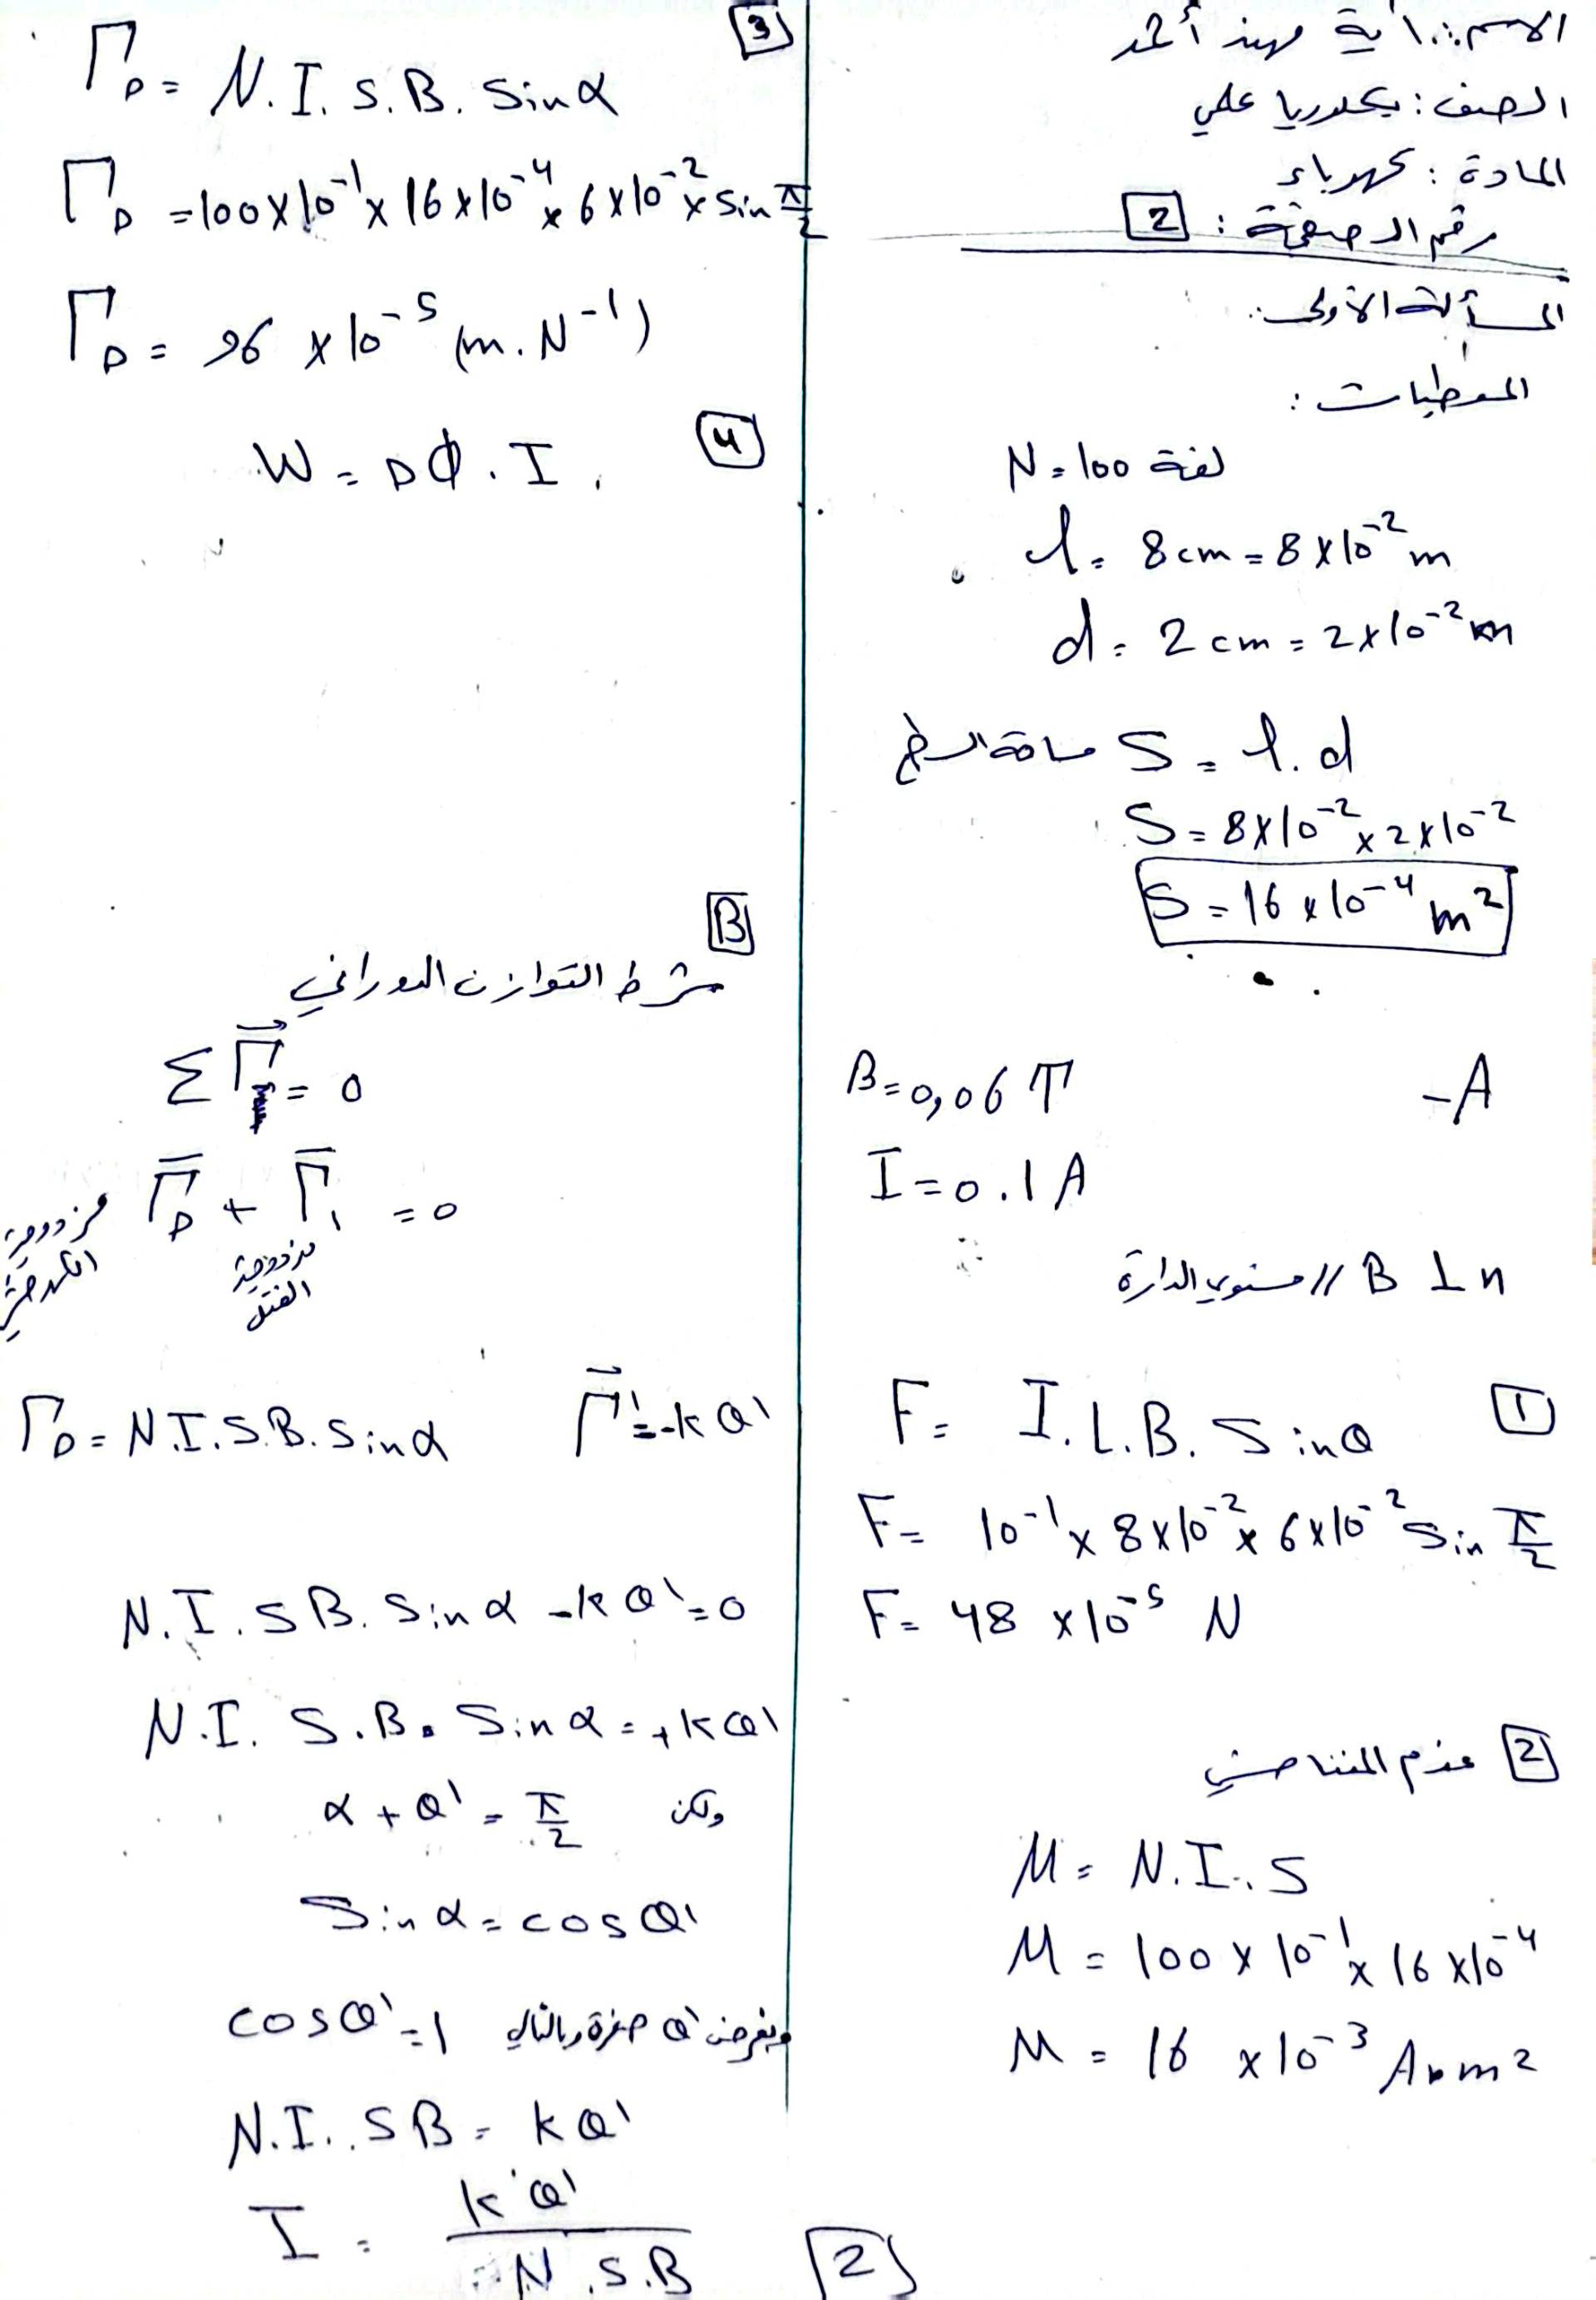 الاسم: آية مهند أحمد
الصف: بكلوريا علمي
المادة: كهرباء
رقم الصفحة: 2
المسألة الأولى:
المعطيات:
N = 100 لفة
l = 8 cm = 8 x 10⁻² m
d = 2 cm = 2 x 10⁻² m
مساحة السطح S = l . d
S = 8 x 10⁻² x 2 x 10⁻²
S = 16 x 10⁻⁴ m²
-A
B = 0,06 T
I = 0.1 A
B ⊥ n // مستوي الدارة
1
F = I . L . B . Sin θ
F = 10⁻¹ x 8 x 10⁻² x 6 x 10⁻² Sin π/2
F = 48 x 10⁻⁵ N
2 عزم المغناطيسي
M = N . I . S
M = 100 x 10⁻¹ x 16 x 10⁻⁴
M = 16 x 10⁻³ A . m²
3
Γ_Δ = N . I . S . B . Sin α
Γ_Δ = 100 x 10⁻¹ x 16 x 10⁻⁴ x 6 x 10⁻² x Sin π/2
Γ_Δ = 96 x 10⁻⁵ (m . N⁻¹)
4
W = Δϕ . I .
B
شرط التوازن الدوراني
Σ Γ = 0
Γ_Δ + Γ₁ = 0
مزدوجة الكهرطيسية
مزدوجة الفتل
Γ_Δ = N . I . S . B . Sin α Γ' = -k θ'
N . I . S B . Sin α - k θ' = 0
N . I . S . B . Sin α = + k θ'
ولكن α + θ' = π/2
Sin α = cos θ'
وبفرض θ' صغيرة وبالتالي cos θ' = 1
N . I . S B = k θ'
I = k θ' / N . S . B
2